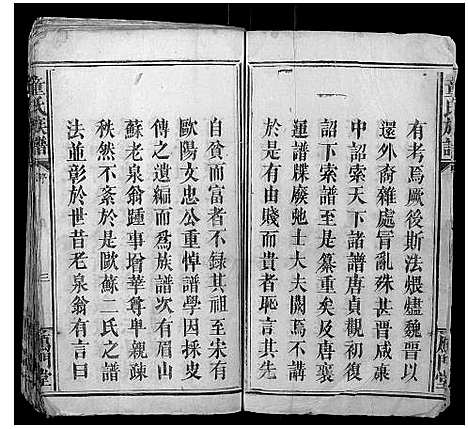 童氏族譜
有考焉厥後斯法煨燼魏晉以
還外裔雜處胥亂殊甚晉咸康
中詔索天下諸譜唐貞觀初復
詔下索譜至是纂重矣及唐衰
運譜牒廢弛士大夫闕焉不講
於是有由賤而貴者恥言其先
自貧而富者不録其祖至宋有
歐陽文忠公重悼譜學因採史
傳之遺編而爲族譜次有眉山
蘇老泉翁踵事增華尊卑親疎
秩然不紊於是歐蘇二氏之譜
法並彰於世昔老泉翁有言曰
童氏族譜
序
三